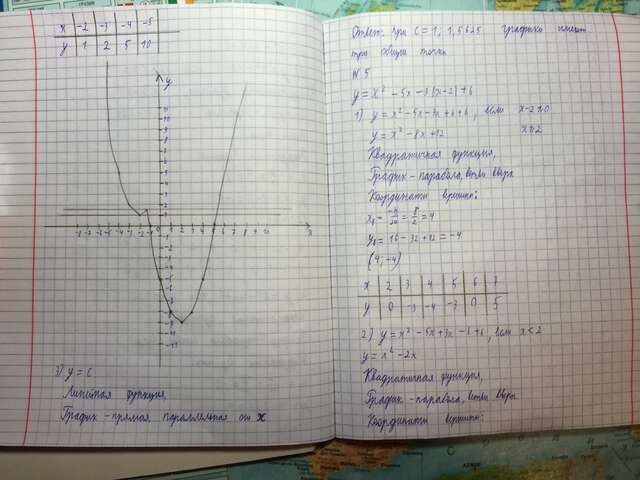 x -2 -3 -4 -5
y 1 2 5 10
y
x
3) y = c
Линейная функция,
График - прямая, параллельная от x
Ответ: При c = 1; 1,5625 графики имеют
три общие точки
N 5
y = x² - 5x - 3|x-2| + 6
1) y = x² - 5x - 3x + 6 + 6, если x-2≥0
y = x² - 8x + 12 x≥2
Квадратичная функция,
График - парабола, ветви вверх
Координаты вершин:
x₀ = = 8/2 = 4
y₀ = 16 - 32 + 12 = -4
(4; -4)
x 2 3 4 5 6 7
y 0 -3 -4 -3 0 5
2) y = x² - 5x + 3x - 6 + 6, если x < 2
y = x² - 2x
Квадратичная функция,
График - парабола, ветви вверх
Координаты вершин: